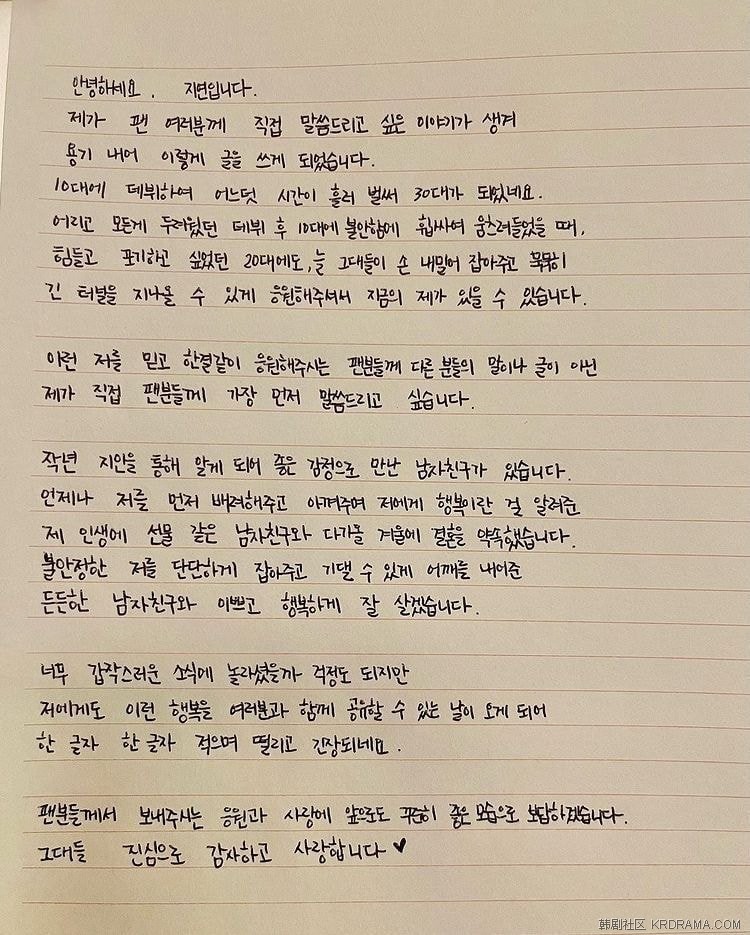 안녕하세요. 지연입니다.
제가 팬 여러분께 직접 말씀드리고 싶은 이야기가 생겨
용기 내어 이렇게 글을 쓰게 되었습니다.
10대에 데뷔하여 어느덧 시간이 흘러 벌써 30대가 되었네요.
어리고 모든게 두려웠던 데뷔 후 10대에 불안함에 휩싸여 움츠려들었을 때,
힘들고 포기하고 싶었던 20대에도, 늘 그대들이 손 내밀어 잡아주고 묵묵히
긴 터널을 지나올 수 있게 응원해주셔서 지금의 제가 있을 수 있습니다.
이런 저를 믿고 한결같이 응원해주시는 팬분들께 다른 분들의 말이나 글이 아닌
제가 직접 팬분들께 가장 먼저 말씀드리고 싶습니다.
작년 지인을 통해 알게 되어 좋은 감정으로 만난 남자친구가 있습니다.
언제나 저를 먼저 배려해주고 아껴주며 저에게 행복이란 걸 알려준
제 인생에 선물 같은 남자친구와 다가올 겨울에 결혼을 약속했습니다.
불안정한 저를 단단하게 잡아주고 기댈 수 있게 어깨를 내어준
든든한 남자친구와 이쁘고 행복하게 잘 살겠습니다.
너무 갑작스러운 소식에 놀라셨을까 걱정도 되지만
저에게도 이런 행복을 여러분과 함께 공유할 수 있는 날이 오게 되어
한 글자 한 글자 적으며 떨리고 긴장되네요.
팬분들께서 보내주시는 응원과 사랑에 앞으로도 꾸준히 좋은 모습으로 보답하겠습니다.
그대들 진심으로 감사하고 사랑합니다 ♥
韩剧社区 KRDRAMA.COM